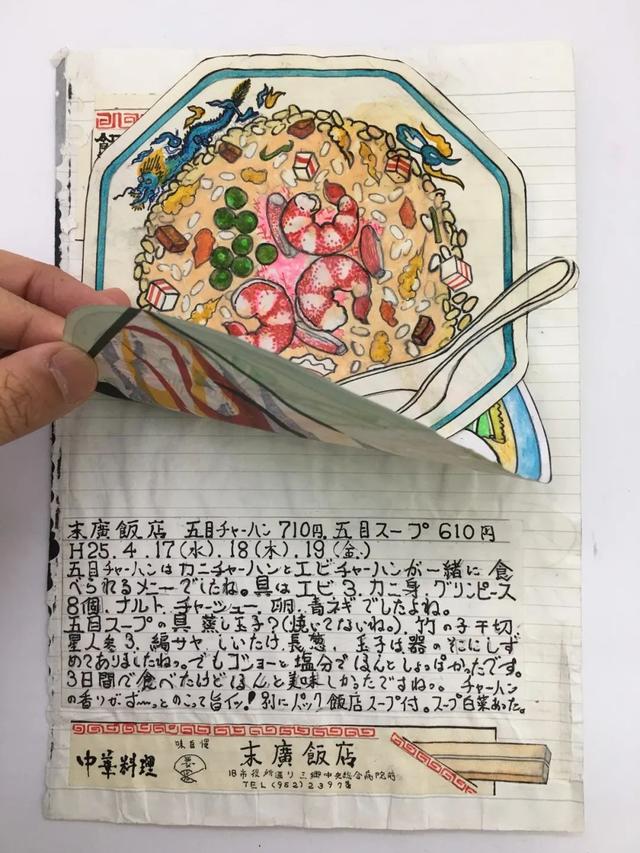 末廣飯店 五目チャーハン710円.五目スープ610円
H25.4.17(水).18(木).19(金.)
五目チャーハンはカニチャーハンとエビチャーハンが一緒に食
べられるメニーでしたね。具はエビ3.カニ身.グリンピース
8個.ナルト.チャーシュー.卵.青ネギでしたよね。
五目スープの具蒸し玉子?(焼いてないね).竹の子千切.
星人参3.絹サヤ.しいたけ.長葱.玉子は器のそこにしず
めてありましたねっ。でもゴショーと塩分でほんとしょっぱかったです。
3日間で食べたけどほんと美味しかったですねっ。チャーハン
の香りがずーっとのこって旨イッ!別にパック飯店スープ付。スープ白菜あった。
味自慢
中華料理
末廣飯店
旧市役所通り三郷中央総合病院前
TEL(952)2397番